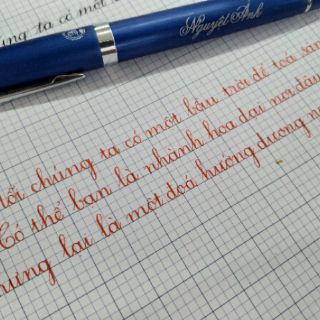 ta có một
Nguyệt Ánh
ỗi chúng ta có một bầu trời để toả san
Có thể bạn là nhành hoa dại nơi
ưng lại là một doá hướng dương n